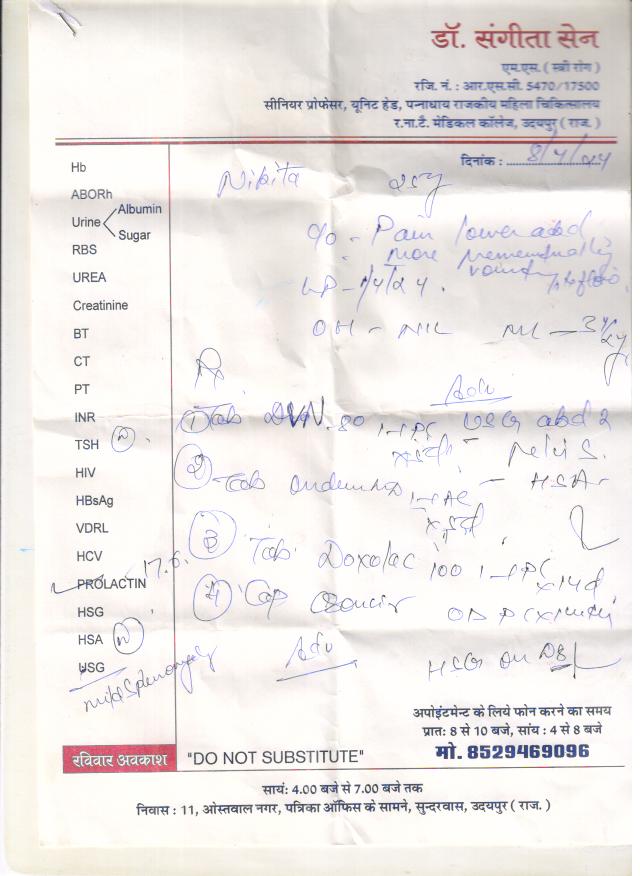 डॉ. संगीता सेन
एम.एस. ( स्त्री रोग )
रजि. नं. : आर.एस.सी. 5470/17500
सीनियर प्रोफेसर, यूनिट हेड, पन्नाधाय राजकीय महिला चिकित्सालय
र.ना.टै. मेडिकल कॉलेज, उदयपुर ( राज. )
दिनांक : 8/4/24
Nikita 25y
c/o - Pain lower abd
more premenstrually
LP - 1/4/24.
OH - NIL ML - 3y
Adv
Hb
ABORh
Urine Albumin
Sugar
RBS
UREA
Creatinine
BT
CT
PT
INR
TSH N
HIV
HBsAg
VDRL
HCV
PROLACTIN 17.6
HSG
HSA N
USG
mild splenomegaly
Rx
① Tab DVN-80 1-1 PC
USG abd & Pelvis
② Tab 1-1 AC
- HSA
③ Tab Doxolac 100 1-1 PC x14d
④ Cap OD PC
Adv
HSG on D8
"DO NOT SUBSTITUTE"
अपोइंटमेन्ट के लिये फोन करने का समय
प्रातः 8 से 10 बजे, सांय : 4 से 8 बजे
मो. 8529469096
रविवार अवकाश
सायंः 4.00 बजे से 7.00 बजे तक
निवास : 11, ओस्तवाल नगर, पत्रिका ऑफिस के सामने, सुन्दरवास, उदयपुर ( राज. )